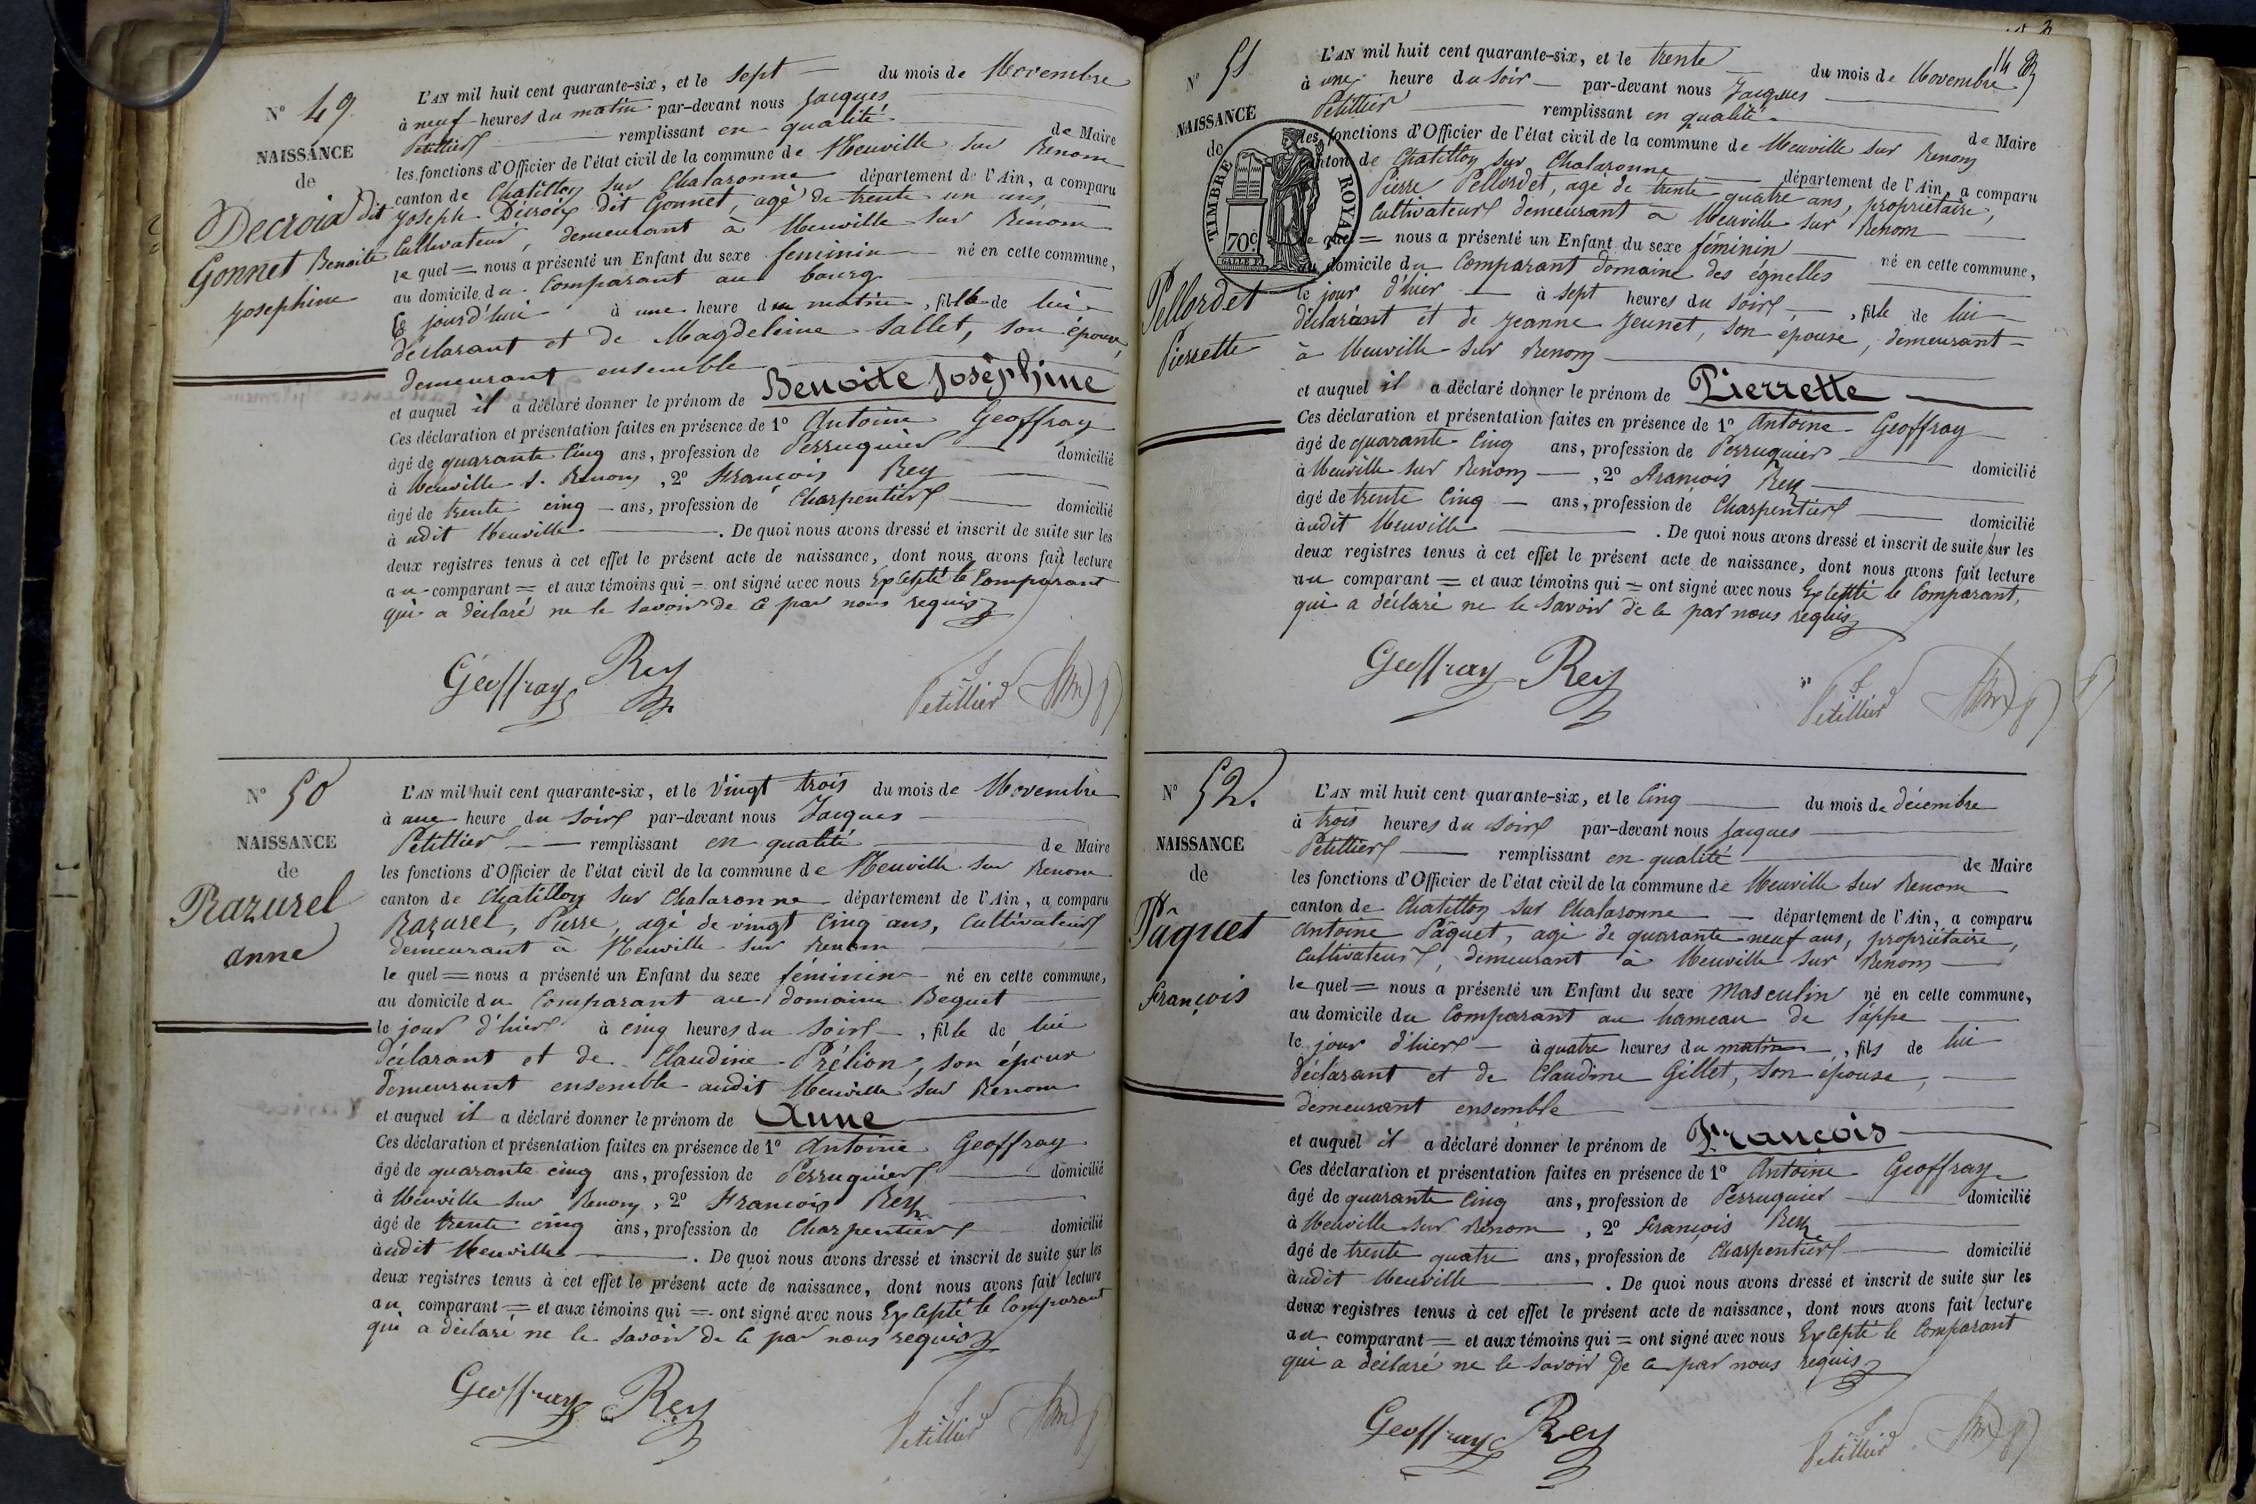 N° 49.
NAISSANCE
de
Decroix dit
Gonnet Benoite
Josephine
L'AN mil huit cent quarante-six, et le sept du mois de Novembre
à neuf heures du matin par-devant nous Jacques
Petillier remplissant en qualité de Maire
les fonctions d'Officier de l'état civil de la commune de Neuville sur Renom
canton de Chatillon sur Chalaronne département de l'Ain, a comparu
Joseph Décroix dit Gonnet, agé de trente un ans,
Cultivateur, demeurant à Neuville sur Renom
le quel = nous a présenté un Enfant du sexe feminin né en cette commune,
au domicile du Comparant au bourg
Ce jourd'hui à une heure du matin, fille de lui
déclarant et de Magdeleine Sallet, son épouse,
demeurant ensemble
et auquel il a déclaré donner le prénom de Benoite Joséphine
Ces déclaration et présentation faites en présence de 1° Antoine Geoffray
âgé de quarante Cinq ans, profession de Perruquier domicilié
à Neuville s. Renom, 2° François Rey
âgé de trente cinq ans, profession de Charpentier domicilié
à udit Neuville. De quoi nous avons dressé et inscrit de suite sur les
deux registres tenus à cet effet le présent acte de naissance, dont nous avons fait lecture
au comparant = et aux témoins qui = ont signé avec nous Excepté le Comparant
qui a déclaré ne le savoir de ce par nous requis
Geoffray Rey Petillier
N° 50
NAISSANCE
de
Razurel
anne
L'AN mil huit cent quarante-six, et le Vingt trois du mois de Novembre
à une heure du soir par-devant nous Jacques
Petillier remplissant en qualité de Maire
les fonctions d'Officier de l'état civil de la commune de Neuville sur Renom
canton de Chatillon sur Chalaronne département de l'Ain, a comparu
Razurel, Pierre, agé de vingt Cinq ans, Cultivateur
demeurant à Neuville sur Renom
le quel = nous a présenté un Enfant du sexe féminin né en cette commune,
au domicile du Comparant au domaine Bequet
le jour d'hier à cinq heures du soir, fille de lui
déclarant et de Claudine Prélion, son épouse
demeurant ensemble audit Neuville sur Renom
et auquel il a déclaré donner le prénom de Anne
Ces déclaration et présentation faites en présence de 1° Antoine Geoffray
âgé de quarante cinq ans, profession de Perruquier domicilié
à Neuville sur Renom, 2° François Rey
âgé de trente cinq ans, profession de Charpentier domicilié
à udit Neuville. De quoi nous avons dressé et inscrit de suite sur les
deux registres tenus à cet effet le présent acte de naissance, dont nous avons fait lecture
au comparant = et aux témoins qui = ont signé avec nous Excepté le Comparant
qui a déclaré ne le savoir de ce par nous requis
Geoffray Rey Petillier
N° 51
NAISSANCE
de
Pellordet
Pierrette
TIMBRE ROYAL
70c
L'AN mil huit cent quarante-six, et le trente du mois de Novembre
à une heure du soir par-devant nous Jacques
Petillier remplissant en qualité de Maire
les fonctions d'Officier de l'état civil de la commune de Neuville sur Renom
canton de Chatillon sur Chalaronne département de l'Ain, a comparu
Pierre Pellordet, agé de trente quatre ans, propriétaire,
Cultivateur demeurant a Neuville sur Renom
le quel = nous a présenté un Enfant du sexe féminin né en cette commune,
au domicile du Comparant domaine des egnelles
le jour d'hier à sept heures du soir, fille de lui
déclarant et de Jeanne Jeunet, son épouse, demeurant
à Neuville sur Renom
et auquel il a déclaré donner le prénom de Pierrette
Ces déclaration et présentation faites en présence de 1° Antoine Geoffray
âgé de quarante Cinq ans, profession de Perruquier domicilié
à Neuville sur Renom, 2° François Rey
âgé de trente Cinq ans, profession de Charpentier domicilié
à udit Neuville. De quoi nous avons dressé et inscrit de suite sur les
deux registres tenus à cet effet le présent acte de naissance, dont nous avons fait lecture
au comparant = et aux témoins qui = ont signé avec nous Excepté le Comparant,
qui a déclaré ne le savoir de ce par nous requis
Geoffray Rey Petillier
N° 52.
NAISSANCE
de
Pâquet
François
L'AN mil huit cent quarante-six, et le Cinq du mois de décembre
à trois heures du soir par-devant nous Jacques
Petillier remplissant en qualité de Maire
les fonctions d'Officier de l'état civil de la commune de Neuville sur Renom
canton de Chatillon sur Chalaronne département de l'Ain, a comparu
Antoine Pâquet, agé de quarante neuf ans, propriétaire,
Cultivateur, demeurant a Neuville sur Renom
le quel = nous a présenté un Enfant du sexe Masculin né en cette commune,
au domicile du Comparant au hameau de Sappe
le jour d'hier à quatre heures du matin, fils de lui
déclarant et de Claudine Gillet, son épouse,
demeurant ensemble
et auquel il a déclaré donner le prénom de François
Ces déclaration et présentation faites en présence de 1° Antoine Geoffray
âgé de quarante Cinq ans, profession de Perruquier domicilié
à Neuville sur Renom, 2° François Rey
âgé de trente quatre ans, profession de Charpentier domicilié
à udit Neuville. De quoi nous avons dressé et inscrit de suite sur les
deux registres tenus à cet effet le présent acte de naissance, dont nous avons fait lecture
au comparant = et aux témoins qui = ont signé avec nous Excepté le Comparant
qui a déclaré ne le savoir de ce par nous requis
Geoffray Rey Petillier